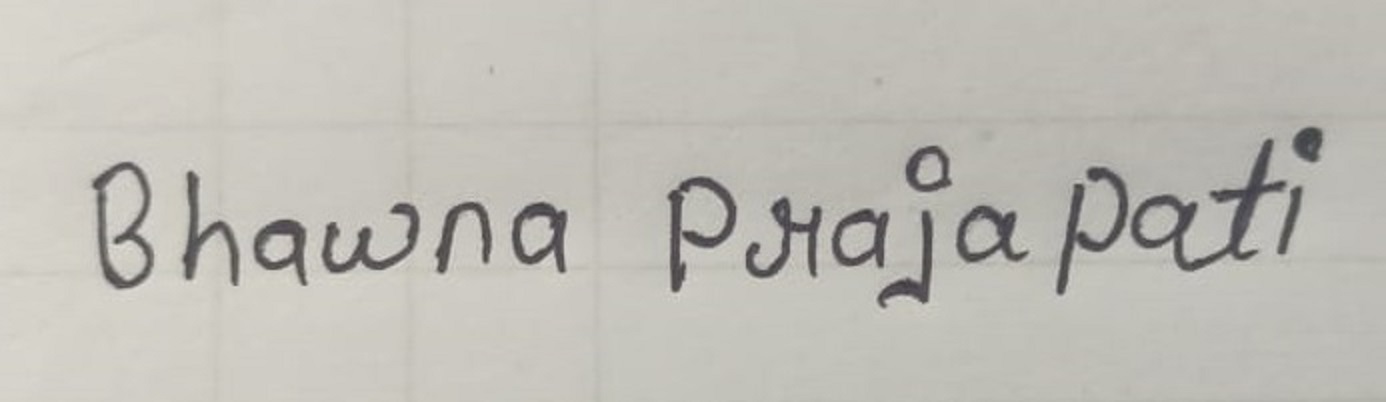 Bhawna Prajapati